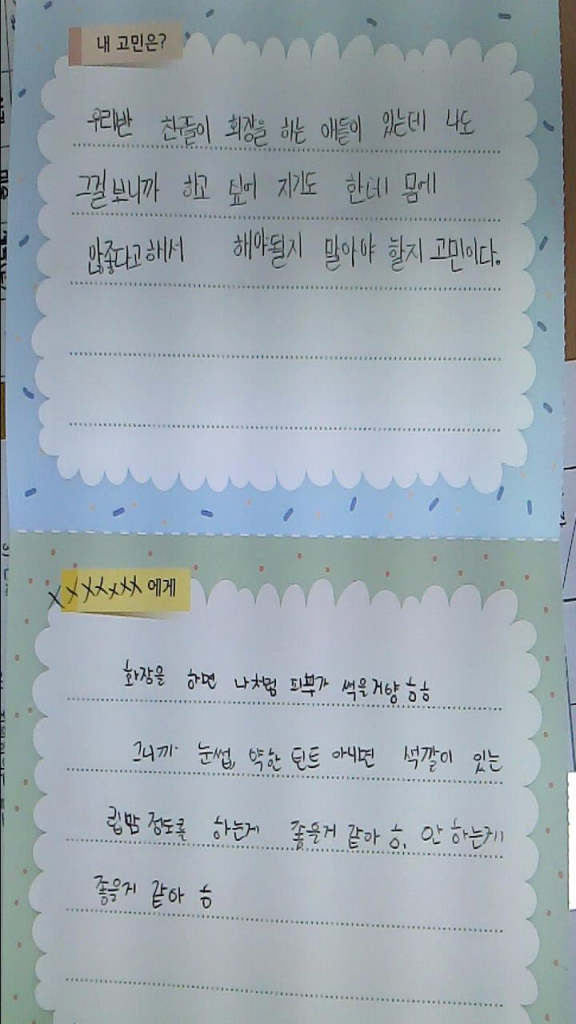 내 고민은?
우리반 친구들이 회장을 하는 애들이 있는데 나도
그걸 보니까 하고 싶어 지기도 한데 몸에
않좋다고 해서 해야될지 말아야 할지 고민이다.
XXXXXXX에게
화장을 하면 나처럼 피부가 썩을거양 ㅎㅎ
그니까 눈썹, 약한 틴트 아니면 색깔이 있는
립밤 정도를 하는게 좋을거 같아 ㅎ, 안 하는게
좋을지 같아 ㅎ